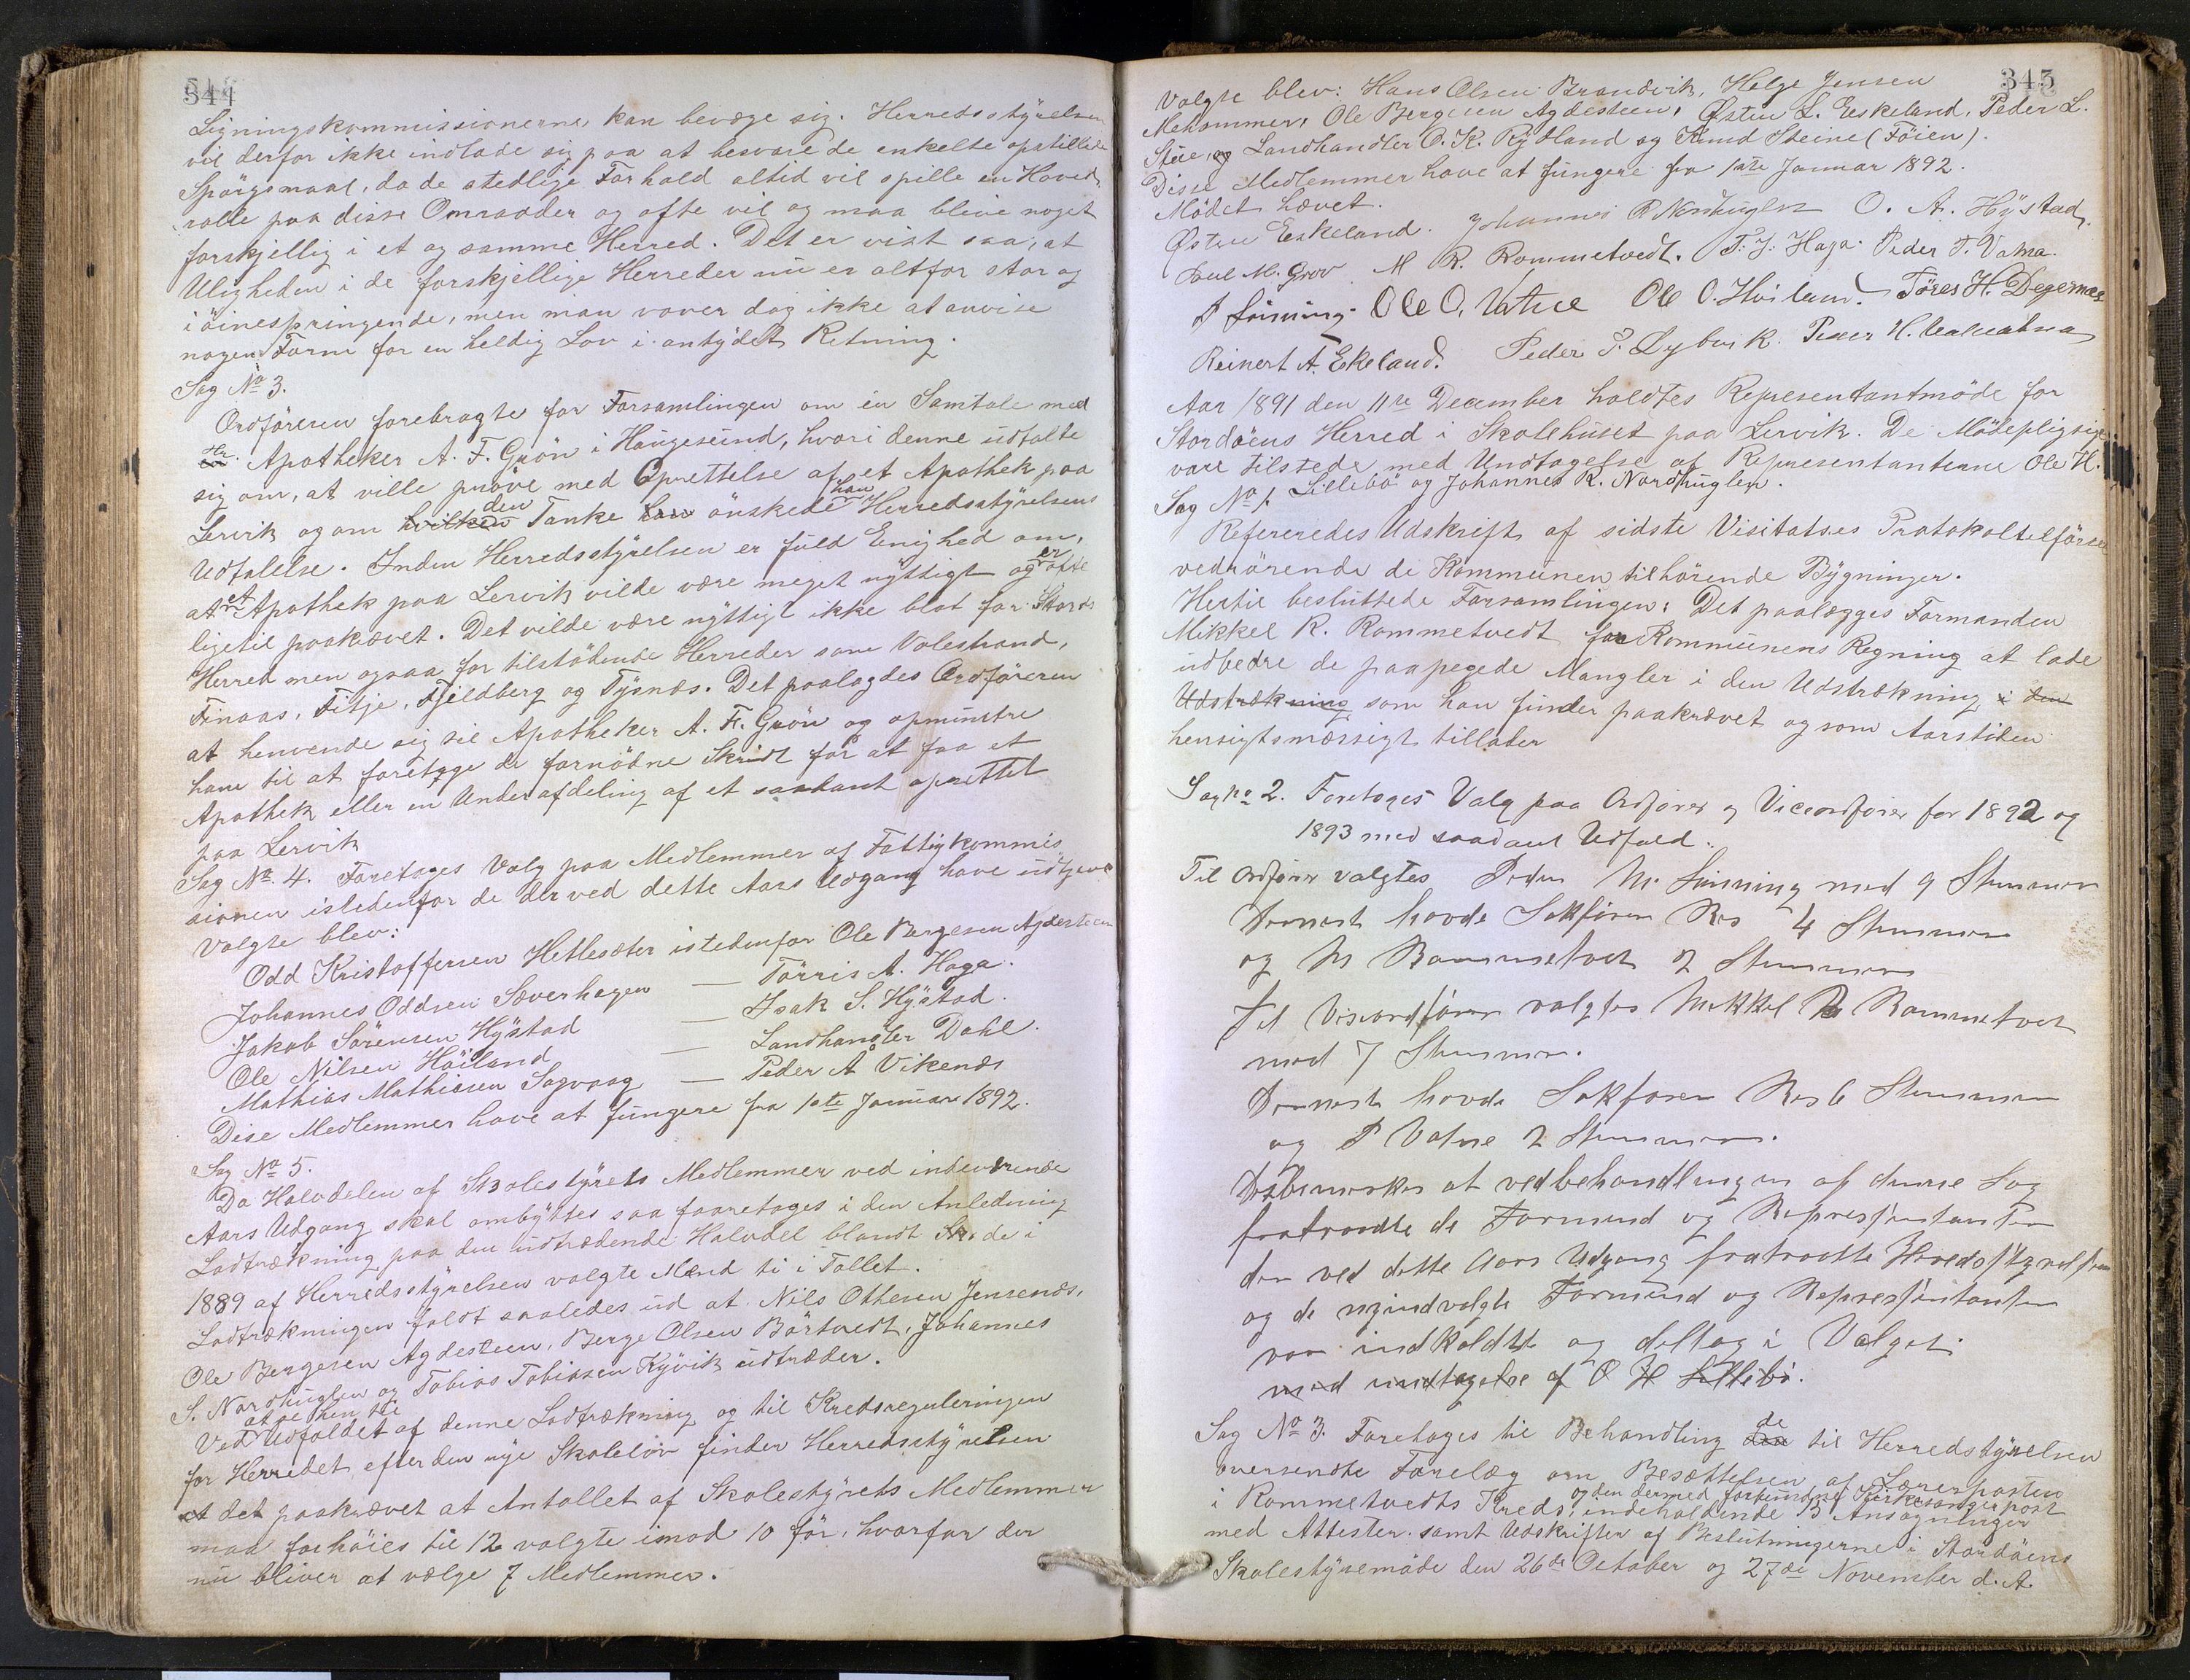 344
Ligningskommissionerne, kan bevæge sig. Herredsstyrelsen
vil derfor ikke indlade sig paa at besvare de enkelte opstillede
Spørgsmaal, da de stedlige Forhold altid vil spille en Hoved-
rolle paa disse Omraader og ofte vil og maa blive noget
forskjellig i et og samme Herred. Det er vist saa, at
Uligheden i de forskjellige Herreder nu er altfor stor og
iöinespringende, men man vover dog ikke at anvise
nogen Form for en heldig Lov i antydet Retning.
Sag No 3.
Ordföreren forebragte for Forsamlingen om en Samtale med
Hr. Apotheker A. F. Grön i Haugesund, hvori denne udtalte
sig om, at ville pröve med Oprettelse af et Apothek paa
Lervik og om hvilken den Tanke han önskede han Herredsstyrelsens
Udtalelse. Inden Herredsstyrelsen er fuld Enighed om,
at et Apothek paa Lervik vilde være meget nyttigt og er ofte
ligetil paakrævet. Det vilde være nyttigt ikke blot for Stords
Herred men ogsaa for tilstödende Herreder som Valestrand,
Finaas, Fitje, Fjeldberg og Tysnæs. Det paalagdes Ordföreren
at henvende sig til Apotheker A. F. Grön og opmuntre
ham til at foretage de fornödne Skridt for at faa et
Apothek eller en Underafdeling af et saadant oprettet
paa Lervik
Sag No. 4. Foretoges Valg paa Medlemmer af Fattigkommis-
sionen istedenfor de der ved dette Aars Udgang have udtjent
Valgte blev:
Odd Kristoffersen Hetlesæter istedenfor Ole Bergesen Agdesteen
Johannes Oddsen Sæverhagen — Törris A. Haga.
Jakob Sörensen Hystad — Isak S. Hystad.
Ole Nilsen Höiland — Landhandler Dahl.
Mathias Mathiasen Sagvaag — Peder A Vikenæs
Disse Medlemmer have at fungere fra 1ste Januar 1892.
Sag No 5.
Da Halvdelen af Skolestyrets Medlemmer ved indeværende
Aars Udgang skal ombyttes saa foaretoges i den Anledning
Lodtrækning paa den udtrædende Halvdel blandt de i
1889 af Herredsstyrelsen valgte Mænd ti i Tallet.
Lodtrækningen faldt saaledes ud at Nils Ottesen Jensenæs,
Ole Bergesen Agdesteen, Berge Olsen Börtvedt, Johannes
S. Nordhuglen og Tobias Tobiasen Kyvik udtræder.
Ved at se hen til Udfaldet af denne Lodtrækning og til Kredsreguleringen
for Herredet efter den nye Skolelöv finder Herredsstyrelsen
at det paakrævet at Antallet af Skolestyrets Medlemmer
maa forhöies til 12 valgte imod 10 för, hvorfor der
nu bliver at vælge 7 Medlemmer.
345
Valgte blev: Hans Olsen Brandvik, Helge Jensen
Mehammer, Ole Bergesen Agdesteen, Østen L. Eskeland, Peder L.
Stue, og Landhandler O. K. Rydland og Knud Steine (Föien).
Disse Medlemmer have at fungere fra 1ste Januar 1892.
Mödet hævet.
Østen Eskeland. Johannes R Nordhuglen O. A. Hystad.
Poul M. Grov M R. Rommetvedt. T. J. Haga. Peder T. Vatna.
P Sünning. Ole O. Vatne Ole O. Hviland. Töres H. Degernæs
Reinert A. Ekeland. Peder P. Dybvik. Peder H.
Aar 1891 den 11te December holdtes Representantmöde for
Stordöens Herred i Skolehuset paa Lervik. De Mödepligtige
vare tilstede med Undtagelse af Representanterne Ole H.
Lillebö og Johannes R. Nordhuglen.
Sag No 1.
Refereredes Udskrift af sidste Visitatses Protokoltilförsel
vedrörende de Kommunen tilhörende Bygninger.
Hertil besluttede Forsamlingen: Det paalægges Formanden
Mikkel R. Rommetvedt for Kommunens Regning at lade
udbedre de paapegede Mangler i den Udstrækning i den
Udstrækning som han finder paakrævet og som Aarstiden
hensigtsmæssigt tillader
Sag No 2. Foretoges Valg paa Ordfører og Viceordfører for 1892 og
1893 med saadant Udfald:
Til Ordfører valgtes Peder M. Sünning med 9 Stemmer
Dernest havde Sakfører Ros 4 Stemmer
og M Rommetvet 2 Stemmer
Til Viseordfører valgtes Mikkel R Rommetvet
med 7 Stemmer.
Dernest havde Sakfører Ros 6 Stemmer
og P Vatne 2 Stemmer.
Det bemerkes at ved behandlingen af denne Sag
fratraadte de Formend og Representanter
der ved dette Aars Udgang fratraadte Heredstyrelsen
og de nyindvalgte Formend og Representanter
var indkaldt og deltog i Valget.
med undtagelse af O H Lillebö.
Sag No 3. Foretoges til Behandling de til Herredstyrelsen
oversendte Forelæg om Besættelsen af Lærerposten
i Rommetvedts Kreds, og den dermed forbundne Kirkesangerpost indeholdende 3 Ansøgninger
med Attester samt Udskrifter af Beslutningerne i Stordöens
Skolestyremöde den 26de October og 27de November d. A.